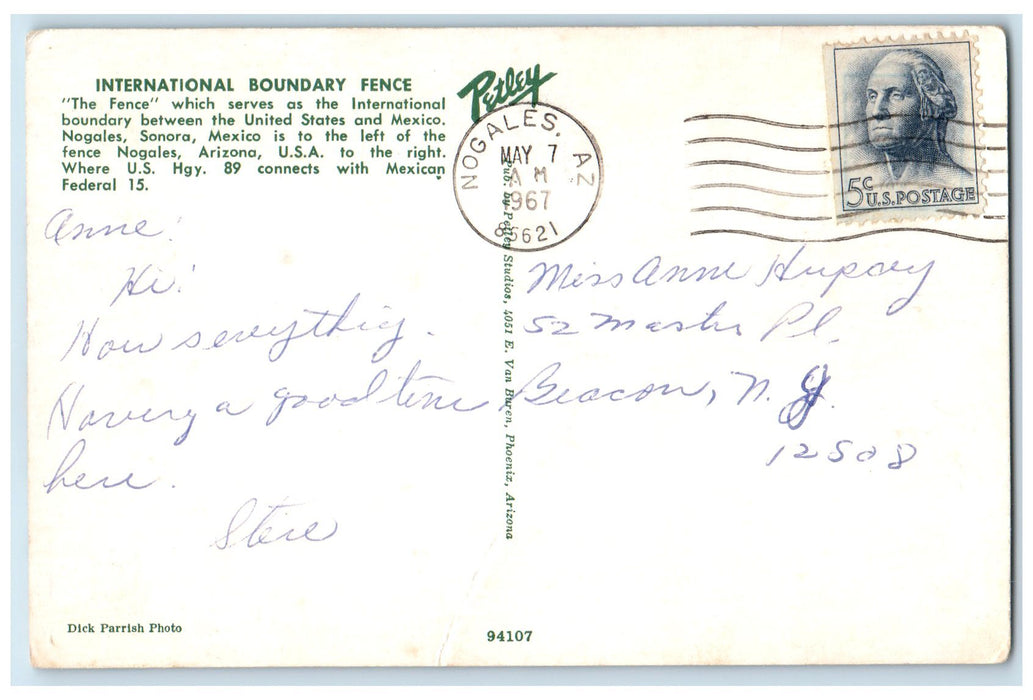 INTERNATIONAL BOUNDARY FENCE
"The Fence" which serves as the International
boundary between the United States and Mexico.
Nogales, Sonora, Mexico is to the left of the
fence Nogales, Arizona, U.S.A. to the right.
Where U.S. Hgy. 89 connects with Mexican
Federal 15.
Petley
NOGALES, AZ
MAY 7
AM
1967
85621
5c
U.S. POSTAGE
Anne!
Hi!
How's everything.
Having a good time
here.
Steve
Pub. by Petley Studios, 4051 E. Van Buren, Phoenix, Arizona
Miss Anne
52 Pl.
Beacon, N. Y.
12508
Dick Parrish Photo
94107